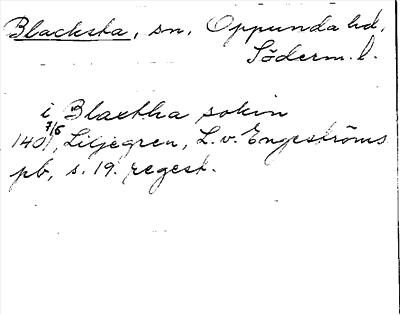 Blacksta, sn, Oppunda hd,
Söderm. l.
i Blaxtha sokin
1401 7/6, Liljegren, L. v. Engeströms
pb, s. 19. regest.